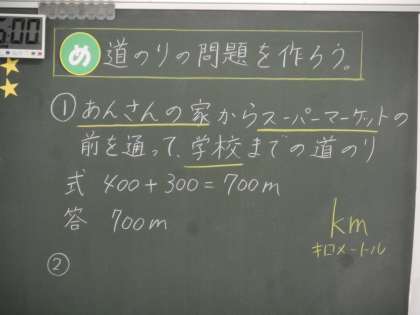 5:00
め 道のりの問題を作ろう。
① あんさんの家からスーパーマーケットの
前を通って、学校までの道のり
式 400+300=700m
答 700m
km
キロメートル
②